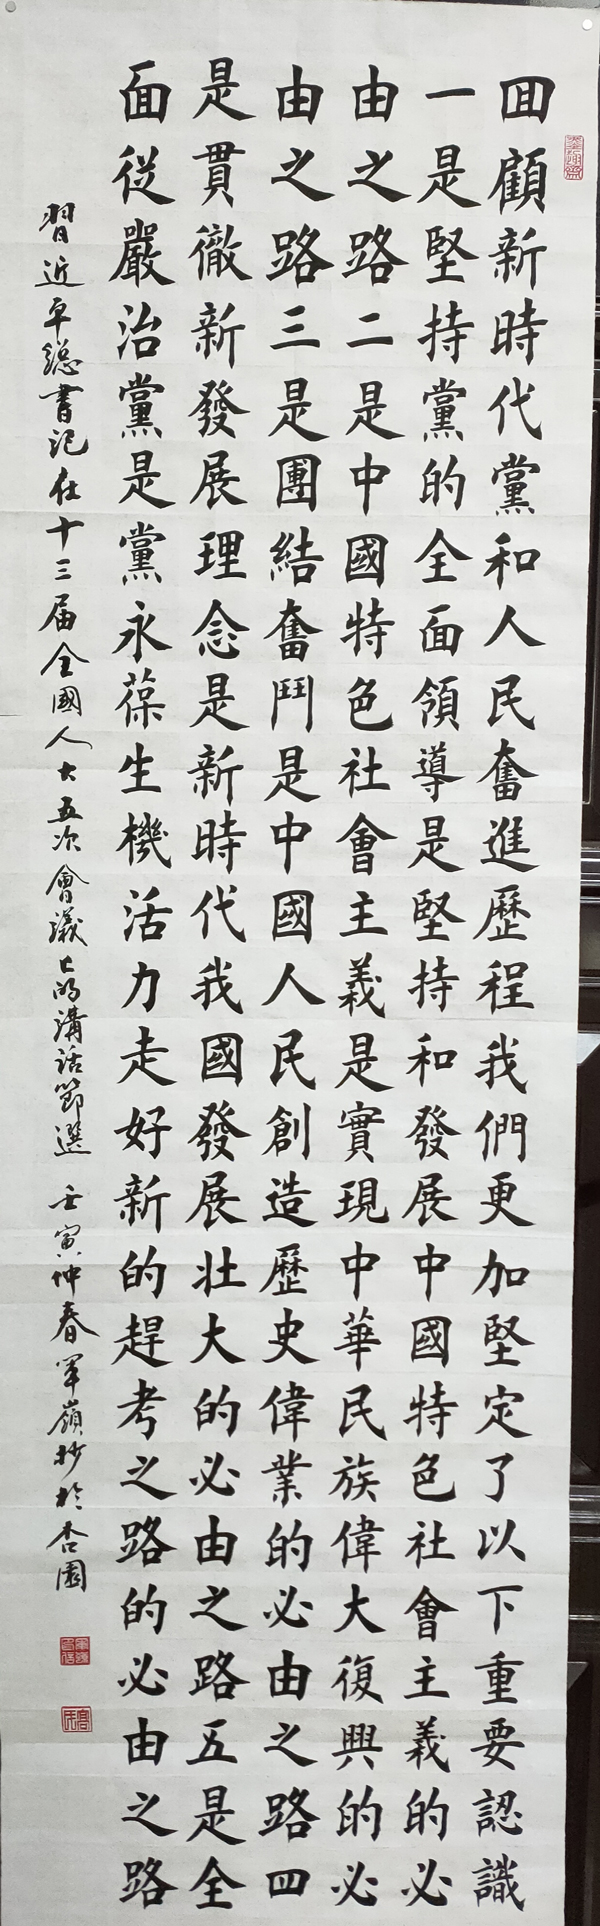 回顧新時代黨和人民奮進歷程我們更加堅定了以下重要認識
一是堅持黨的全面領導是堅持和發展中國特色社會主義的必
由之路二是中國特色社會主義是實現中華民族偉大復興的必
由之路三是團結奮鬥是中國人民創造歷史偉業的必由之路四
是貫徹新發展理念是新時代我國發展壯大的必由之路五是全
面從嚴治黨是黨永葆生機活力走好新的趕考之路的必由之路
習近平總書記在十三届全國人大五次會議上的講話節選 壬寅仲春軍嶺抄於杏園